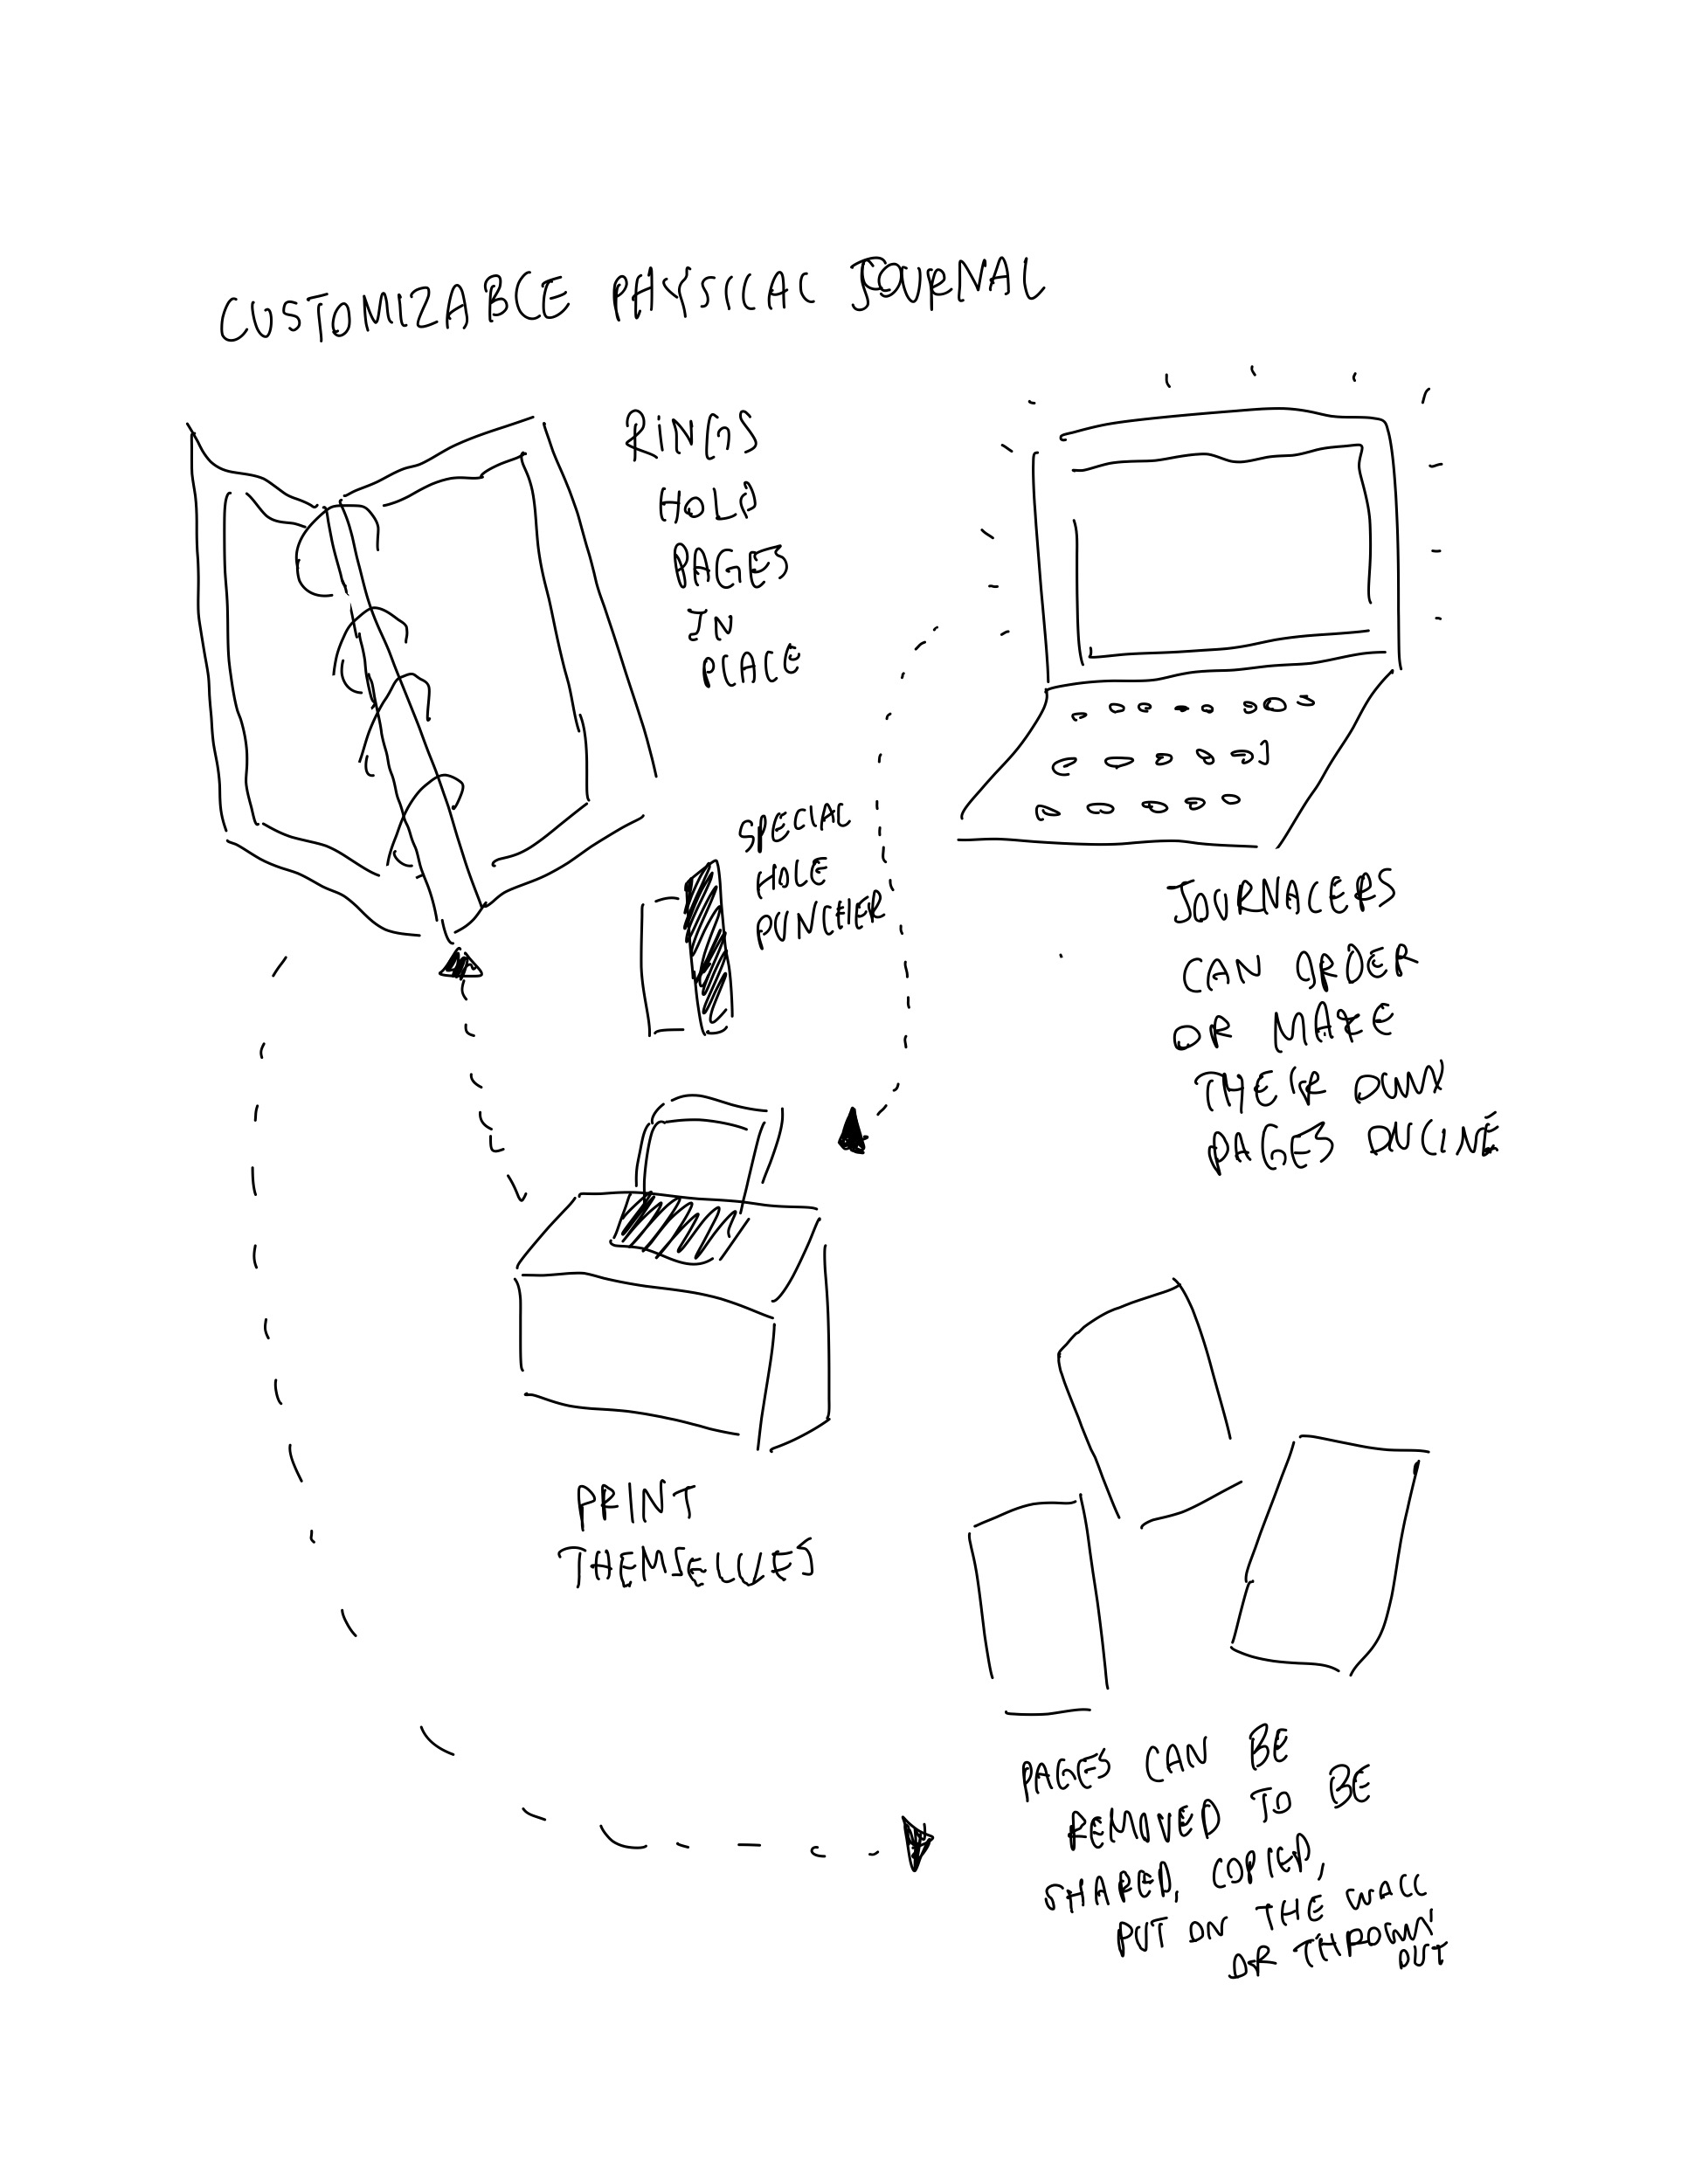 CUSTOMIZABLE PHYSICAL JOURNAL
RINGS
HOLD
PAGES
IN
PLACE
SPECIAL
HOLE
PUNCHER
JOURNALERS
CAN ORDER
OR MAKE
THEIR OWN
PAGES ONLINE
PRINT
THEMSELVES
PAGES CAN BE
REMOVED TO BE
SHARED, COPIED,
PUT ON THE WALL
OR THROWN
OUT